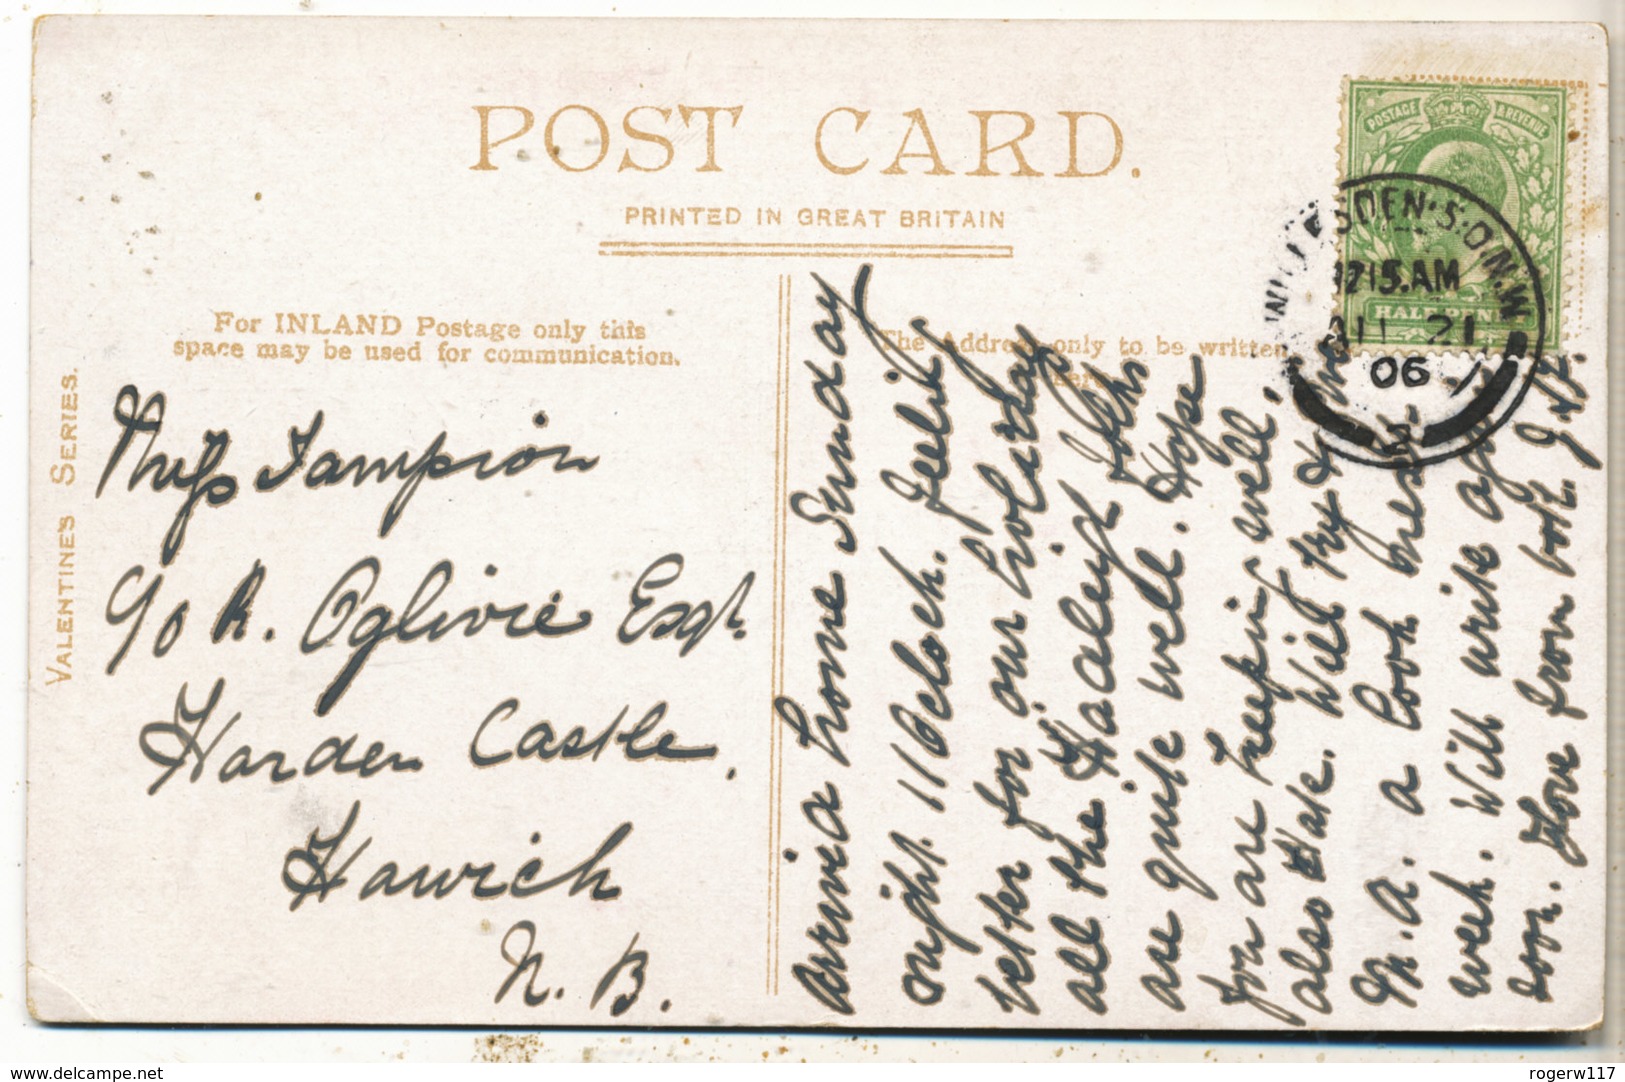 POST CARD.
PRINTED IN GREAT BRITAIN
For INLAND Postage only this
space may be used for communication.
The Address only to be written
VALENTINE'S SERIES.
Miss Tampion
c/o R. Ogilvie Esqr.
Harden Castle,
Hawick
N. B.
arrived home Sunday
night 11 Oclock. Feeling
better for our holiday
all the Hadleigh folks
are quite well. Hope
you are keeping well,
also Kate. Will try to give
M. A. a look next
week. Will write again
soon. Love from both J.
POSTAGE & REVENUE
HALF PENNY
WILLESDEN.S.O.N.W.
1215.AM
21
06
2
delcampe.net
rogerw117